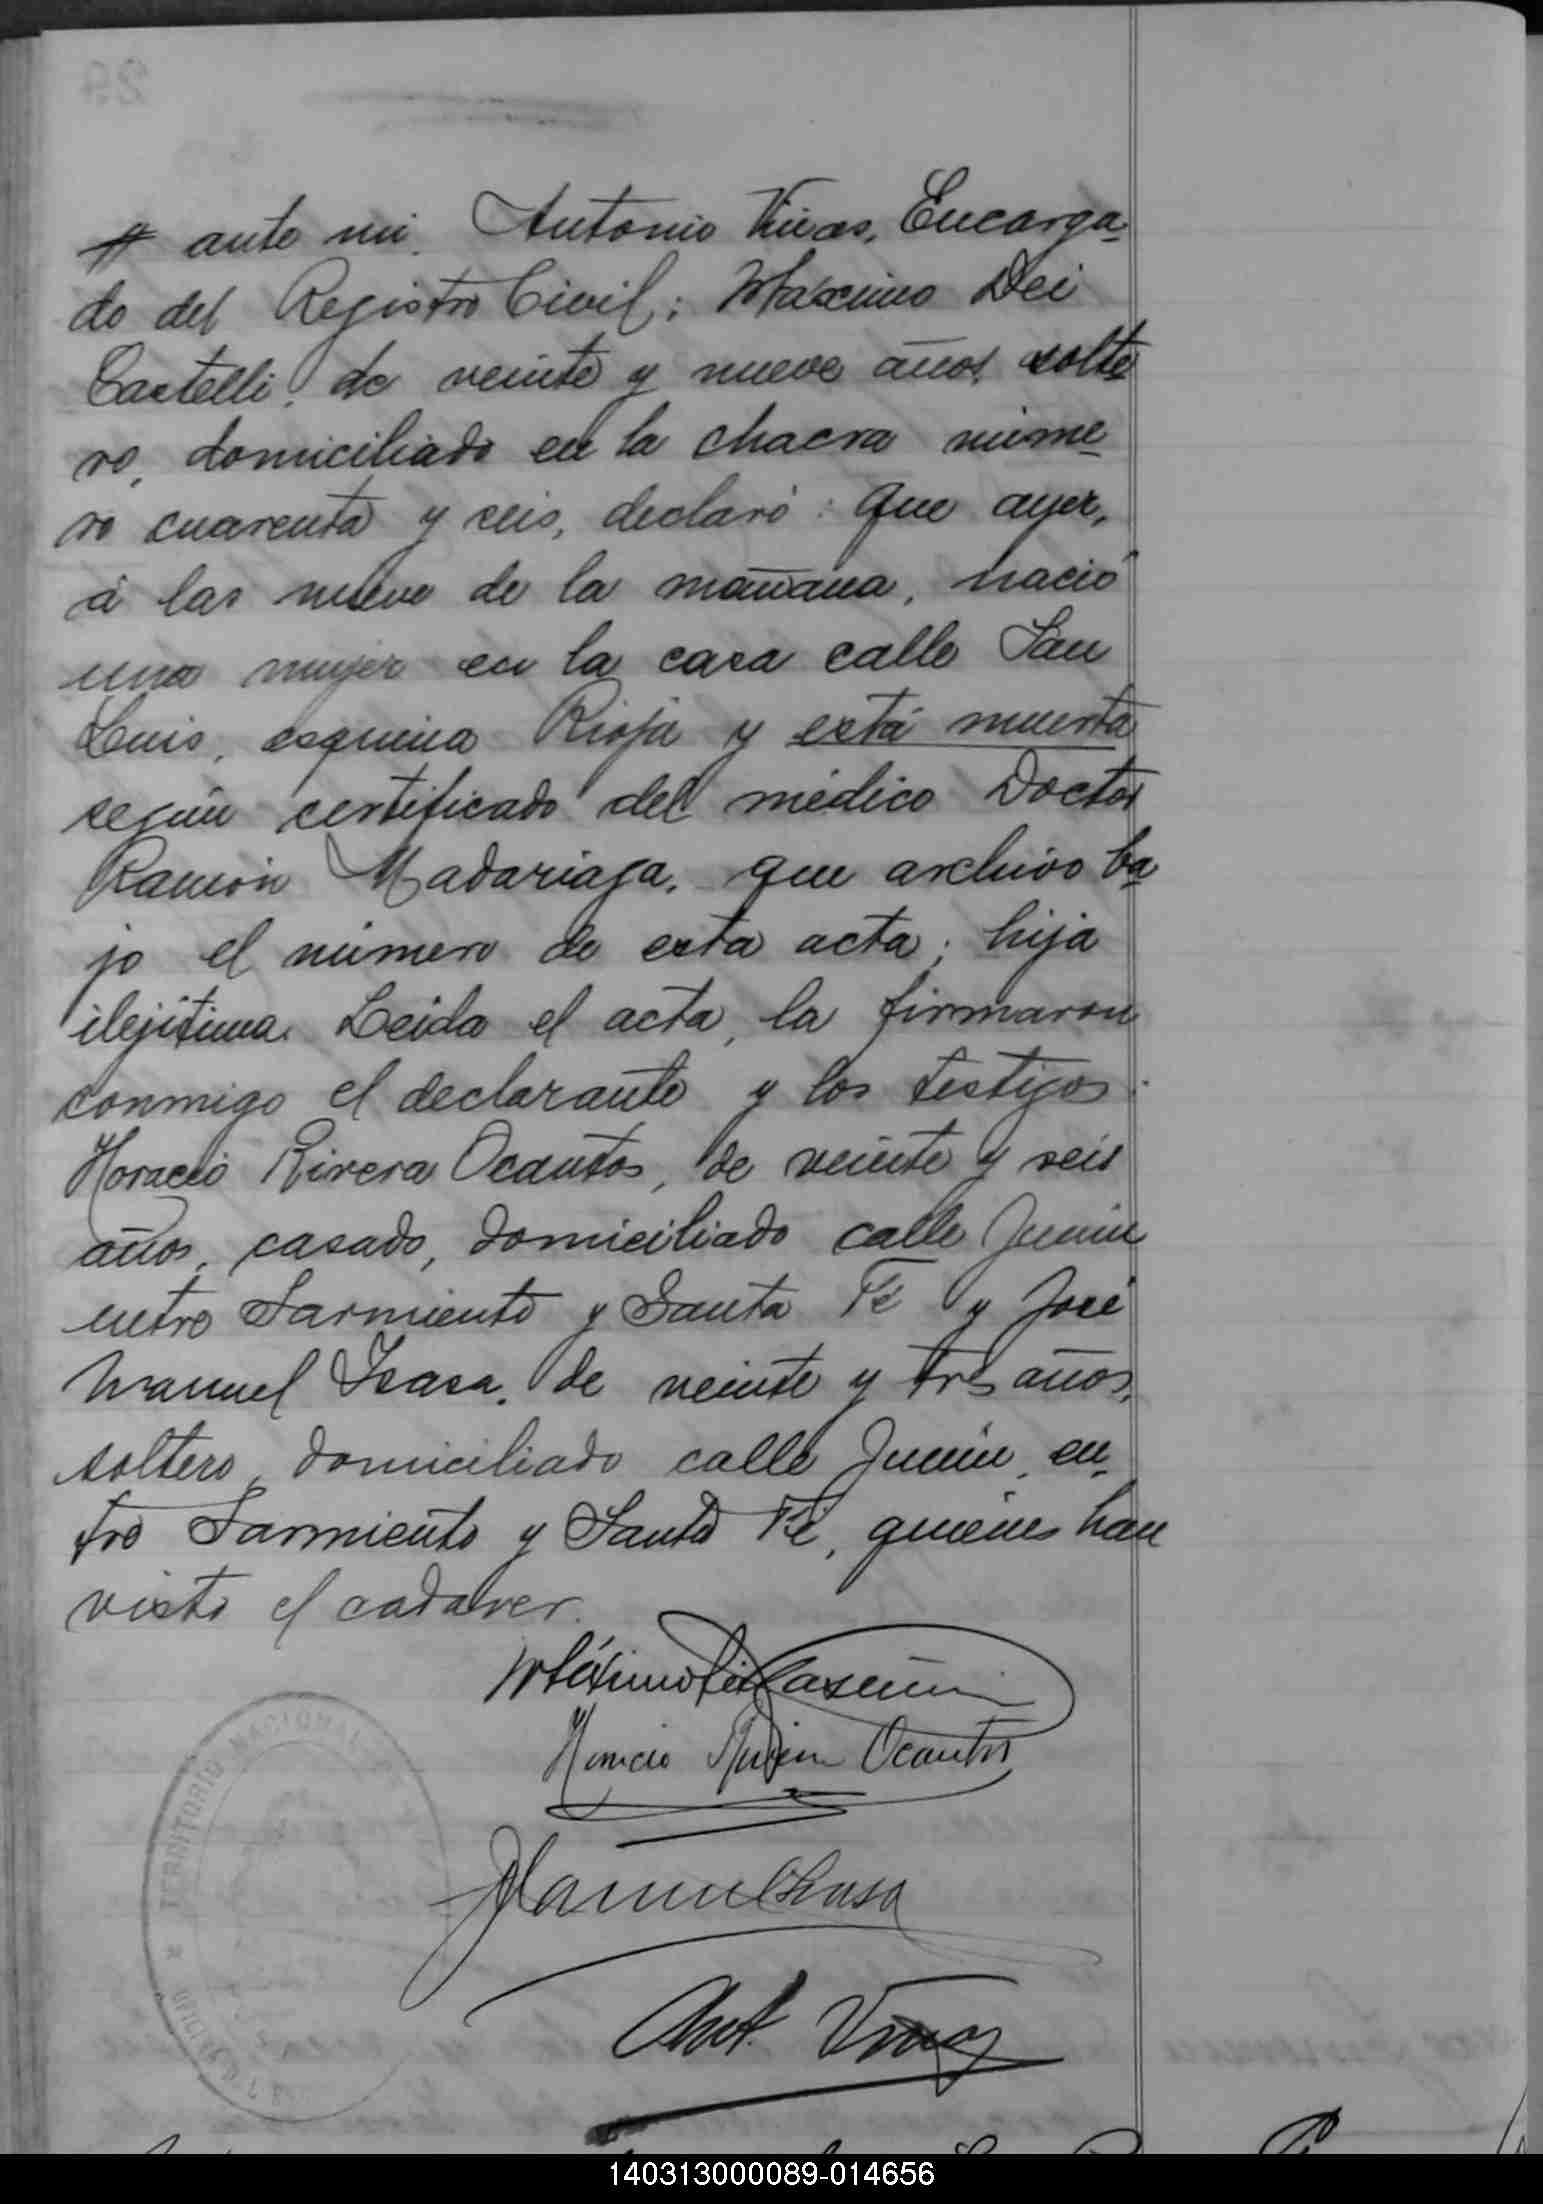 29
# ante mi. Antonio Vivas, Encarga-
do del Registro Civil; Maximo Dei
Castelli, de veinte y nueve años, solte-
ro, domiciliado en la chacra núme-
ro cuarenta y seis, declaró: Que ayer,
á las nueve de la mañana, nació
una mujer en la casa calle San
Luis, esquina Rioja y está muerta
según certificado del médico Doctor
Ramón Madariaga, que archivo ba-
jo el número de esta acta; hija
ilejítima. Leida el acta, la firmaron
conmigo el declarante y los testigos:
Horacio Rivera Ocantos, de veinte y seis
años, casado, domiciliado calle Junin
entre Sarmiento y Santa Fé y José
Manuel Isasa, de veinte y tres años,
soltero, domiciliado calle Junin, en-
tre Sarmiento y Santa Fé, quienes han
visto el cadaver.
Máximo Dei Castelli
Horacio Rivera Ocantos
JManuel Isasa
Ant. Vivas
TERRITORIO NACIONAL
140313000089-014656